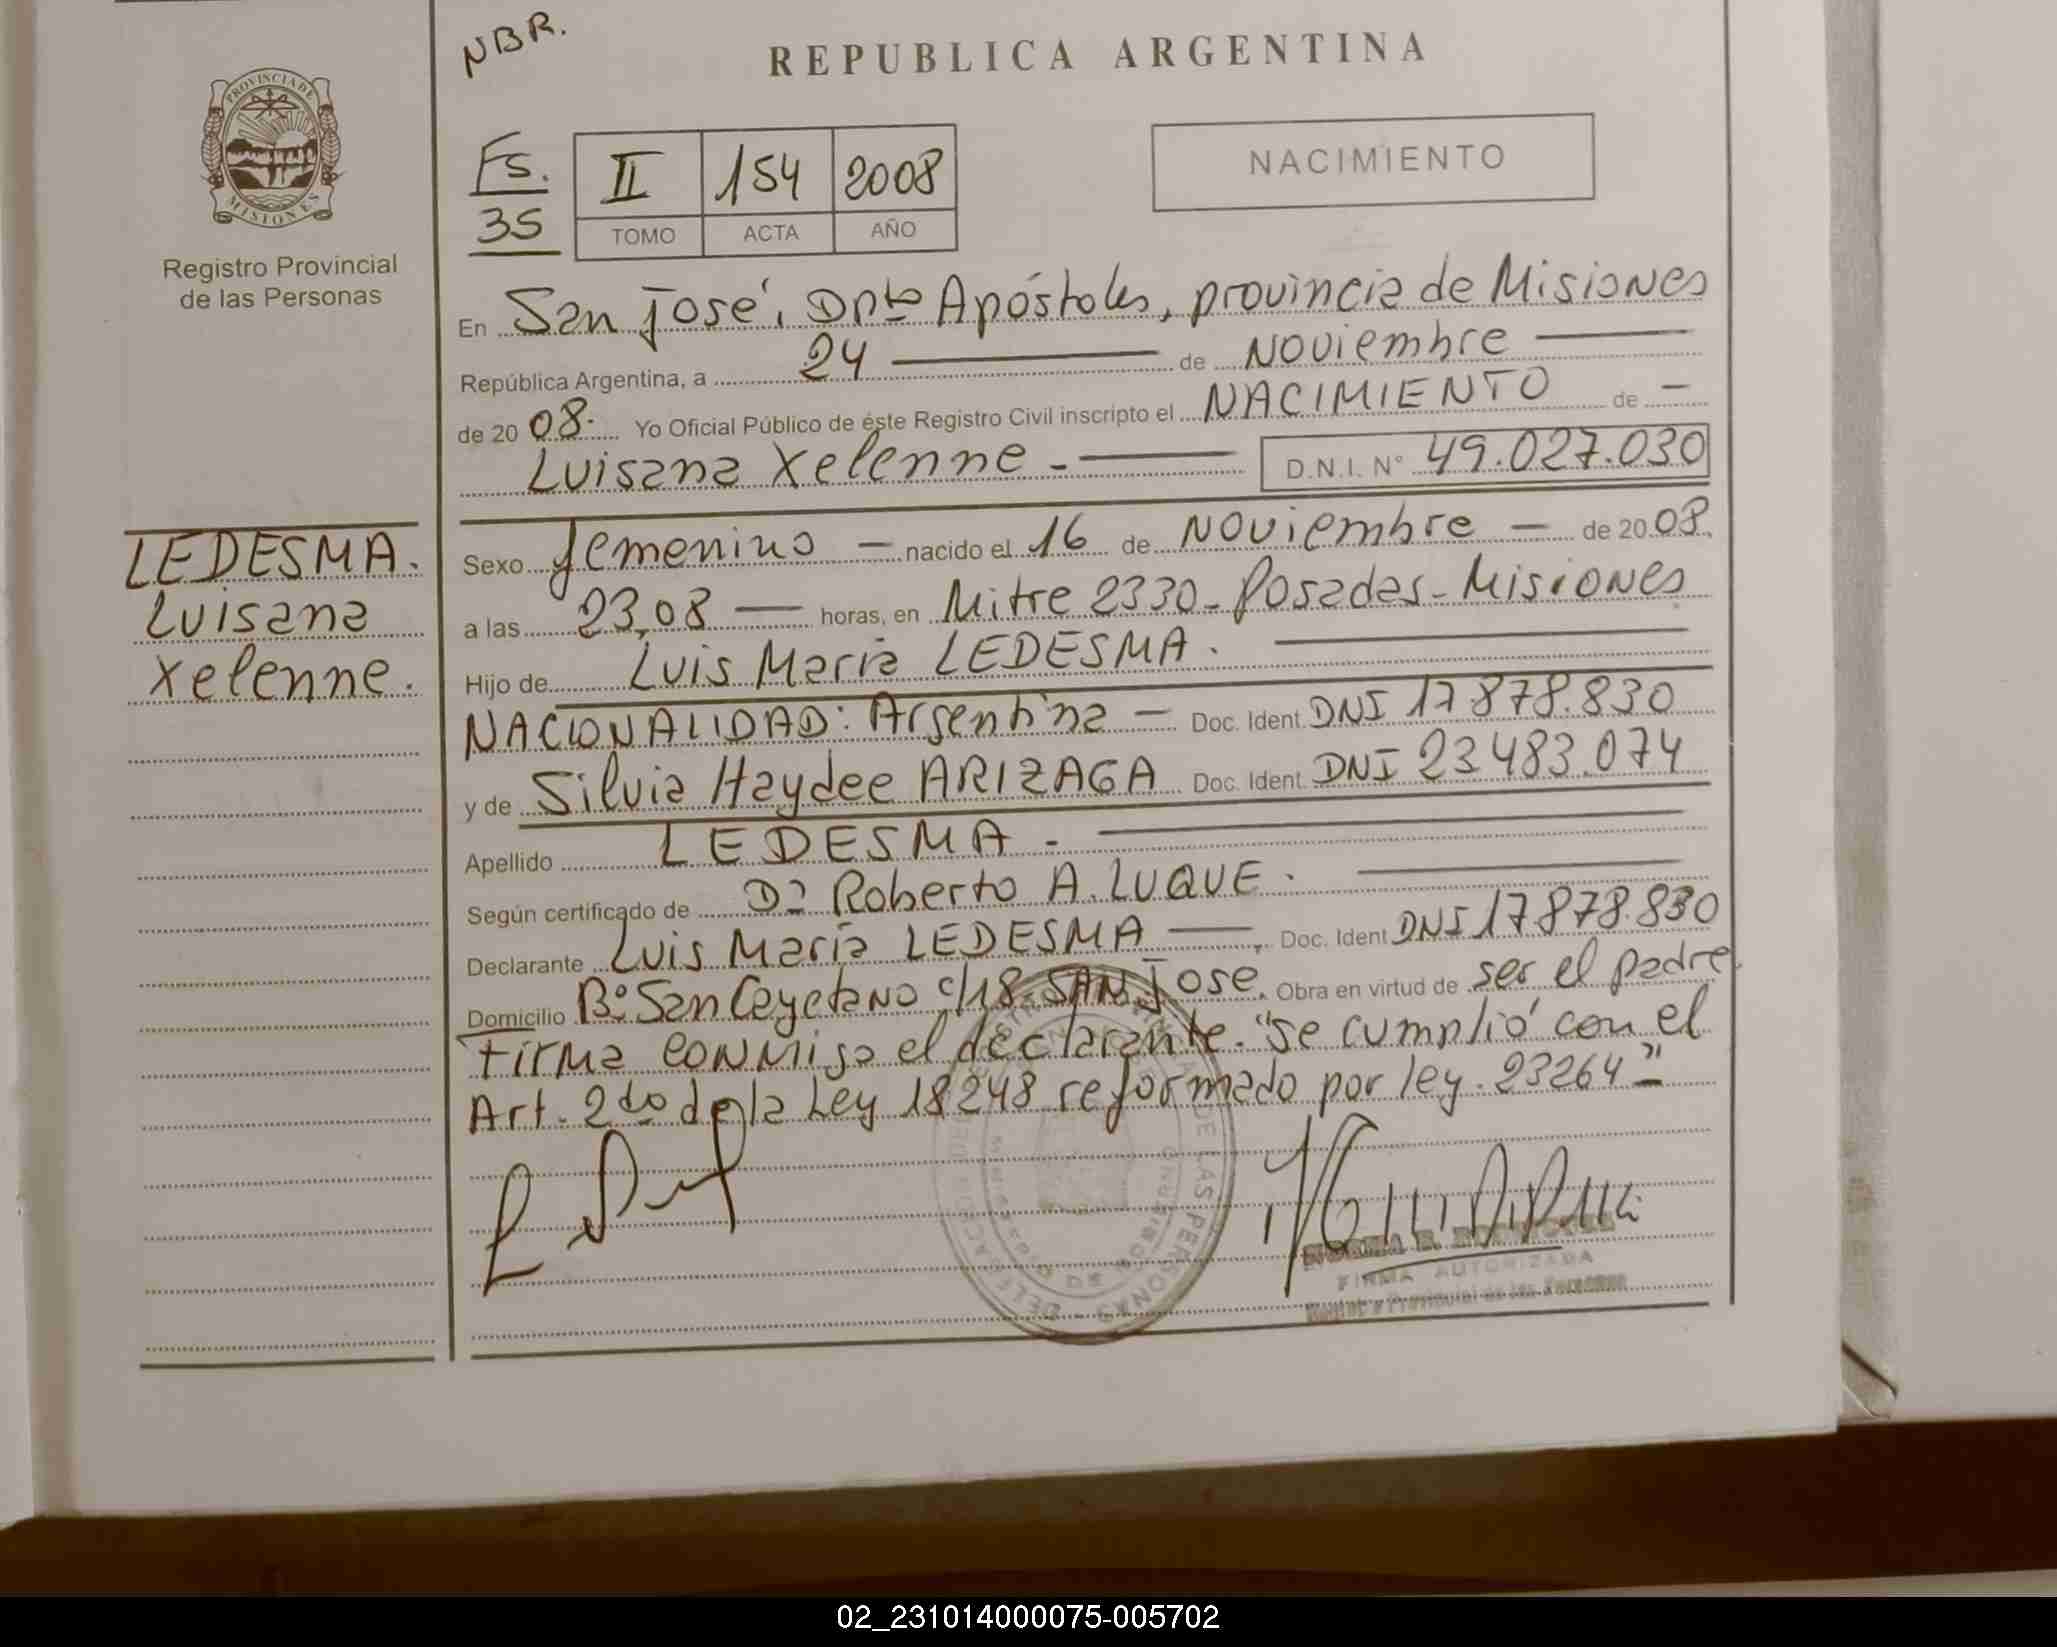 NBR.
REPUBLICA ARGENTINA
PROVINCIA DE MISIONES
Registro Provincial
de las Personas
Fs.
35
II 154 2008
TOMO ACTA AÑO
NACIMIENTO
En San José, Dpto Apóstoles, provincia de Misiones
República Argentina, a 24 de Noviembre
de 2008. Yo Oficial Público de éste Registro Civil inscripto el NACIMIENTO de —
Luisana Xelenne - D.N.I. N° 49.027.030
LEDESMA.
Luisana
Xelenne.
Sexo femenino — nacido el 16 de Noviembre — de 2008.
a las 23,08 — horas, en Mitre 2330 - Posadas - Misiones
Hijo de Luis María LEDESMA.
NACIONALIDAD: Argentina — Doc. Ident. DNI 17878.830
y de Silvia Haydee ARIZAGA Doc. Ident. DNI 23483.074
Apellido LEDESMA -
Según certificado de Dr Roberto A. LUQUE.
Declarante Luis María LEDESMA —, Doc. Ident DNI 17878.830
Domicilio B° San Cayetano c/18 SAN Jose. Obra en virtud de ser el padre
Firma conmigo el declarante. "se cumplió con el
Art. 2do de la Ley 18248 reformado por ley. 23264"
FIRMA AUTORIZADA
Registro Provincial de las Personas
02_231014000075-005702